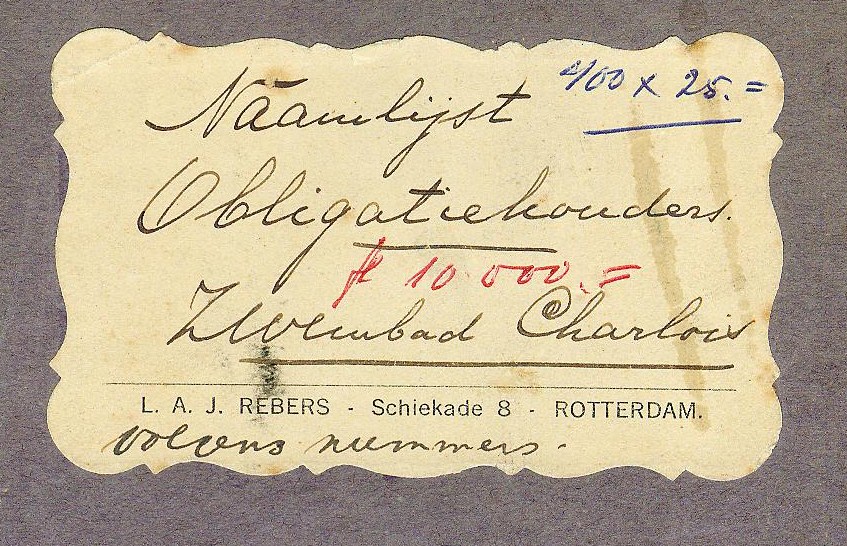 Naamlijst
400 x 25.=
Obligatiehouders.
fl 10.000.=
Zwembad Charlois
L. A. J. REBERS - Schiekade 8 - ROTTERDAM.
volgens nummers.